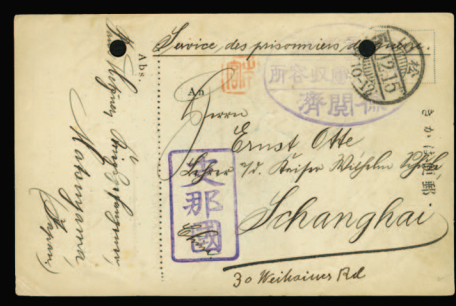 Service des prisonniers de guerre.
Abs.
Kriegsgefangener,
Matsuyama,
Japan
An
Herrn
Ernst Otte
Lehrer a/d. Kaiser Wilhelm Schule
Schanghai
30 Weihaiwei Rd
支那國
収容所
閲濟
松山
きがは便郵